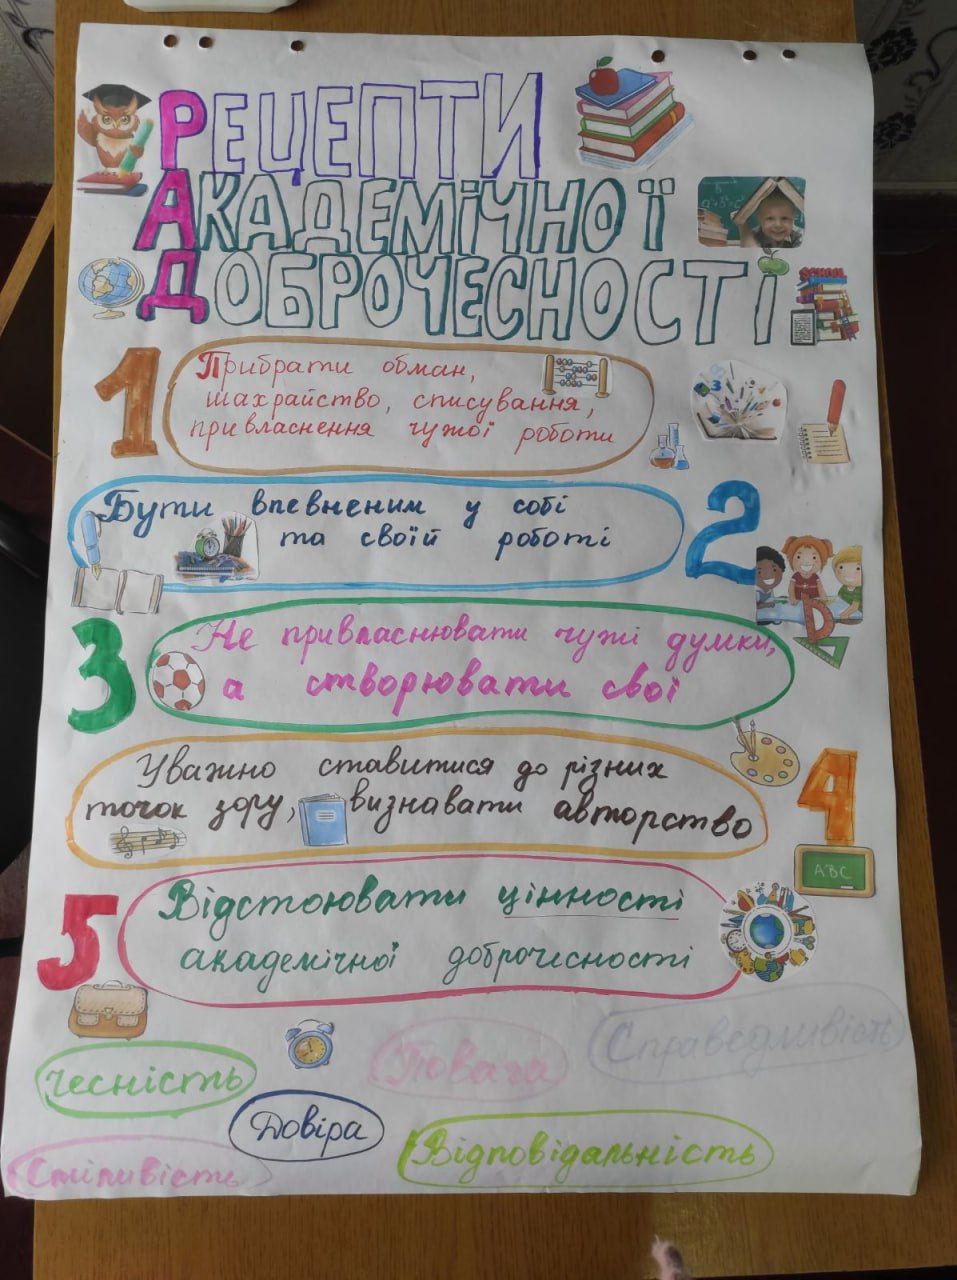 РЕЦЕПТИ
АКАДЕМІЧНОЇ
ДОБРОЧЕСНОСТІ
SCHOOL
1
Прибрати обман,
шахрайство, списування,
привласнення чужої роботи
2
Бути впевненим у собі
та своїй роботі
3
Не привласнювати чужі думки,
а створювати свої
4
Уважно ставитися до різних
точок зору, визнавати авторство
ABC
5
Відстоювати цінності
академічної доброчесності
Чесність
Повага
Справедливість
Довіра
Сміливість
Відповідальність